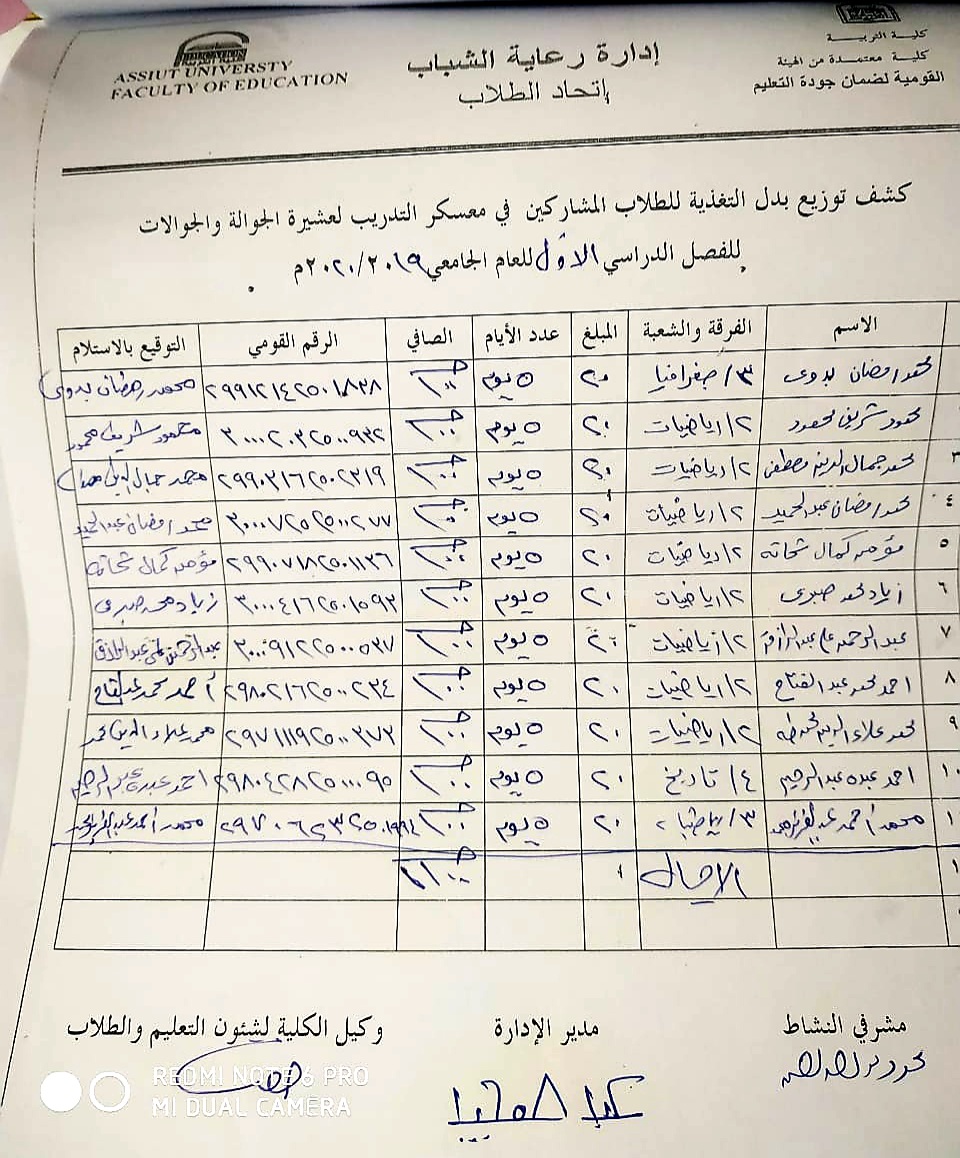 كلية التربية
كلية معتمدة من الهيئة
القومية لضمان جودة التعليم
إدارة رعاية الشباب
إتحاد الطلاب
ASSIUT UNIVERSTY
FACULTY OF EDUCATION
كشف توزيع بدل التغذية للطلاب المشاركين في معسكر التدريب لعشيرة الجوالة والجوالات
للفصل الدراسي الأول للعام الجامعي ٢٠٢٠/٢٠١٩م
الاسم الفرقة والشعبة المبلغ عدد الأيام الصافي الرقم القومي التوقيع بالاستلام
محمد رمضان بدوى ٣/جغرافيا ٢٠ ٥ يوم ١٠٠ ٢٩٩١٢١٤٢٥٠١٨٣٨ محمد رمضان بدوى
محمود شريف محمود ٢/رياضيات ٢٠ ٥ يوم ١٠٠ ٣٠٠٠٢٠٣٢٥٠٠٩٣٢ محمود شريف محمود
٣ محمد جمال الدين مصطفى ٢/رياضيات ٢٠ ٥ يوم ١٠٠ ٢٩٩٠٣١٦٢٥٠٢٣١٩ محمد جمال الدين
٤ محمد رمضان عبد الحميد ٢/رياضيات ٢٠ ٥ يوم ١٠٠ ٣٠٠٠٧٢٥٢٥٠٠٢٧٧ محمد رمضان عبد الحميد
٥ مؤمن كمال شحاته ٢/رياضيات ٢٠ ٥ يوم ١٠٠ ٢٩٩٠٧١٨٢٥٠١١٣٦ مؤمن كمال شحاته
٦ زياد محمد صبرى ٢/رياضيات ٢٠ ٥ يوم ١٠٠ ٣٠٠٠٤١٦٢٥٠١٥٩٣ زياد محمد صبرى
٧ عبد الرحمن على عبد الرازق ٢/رياضيات ٢٠ ٥ يوم ١٠٠ ٣٠٠٠٩١٢٢٥٠٠٥٣٧ عبد الرحمن على عبد الرازق
٨ احمد محمد عبد الفتاح ٢/رياضيات ٢٠ ٥ يوم ١٠٠ ٢٩٨٠٢١٦٢٥٠٠٢٣٤ أحمد محمد عبد الفتاح
٩ محمد علاء الدين ٢/رياضيات ٢٠ ٥ يوم ١٠٠ ٢٩٧١١١٩٢٥٠٠٣٧٣ محمد علاء الدين محمد
١٠ احمد عبده عبد الرحيم ٤/تاريخ ٢٠ ٥ يوم ١٠٠ ٢٩٨٠٤٢٨٢٥٠٠٠٩٥ احمد عبده عبد الرحيم
محمد أحمد ٣/رياضيات ٢٠ ٥ يوم ١٠٠ محمد أحمد
الاجمالى ١١٠٠
مشرفي النشاط مدير الإدارة وكيل الكلية لشئون التعليم والطلاب
REDMI NOTE 6 PRO
MI DUAL CAMERA